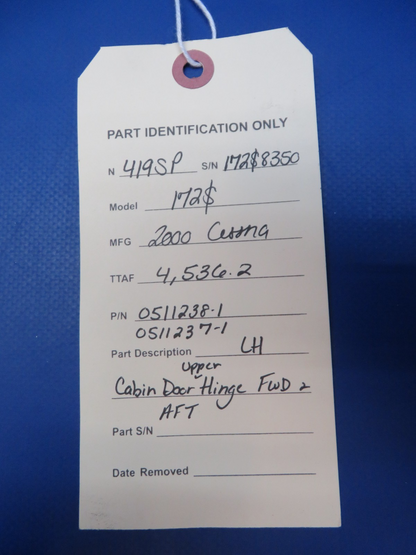 PART IDENTIFICATION ONLY
N 419SP S/N 172S8350
Model 172S
MFG 2000 Cessna
TTAF 4,536.2
P/N 0511238-1
0511237-1
Part Description LH
upper
Cabin Door Hinge FWD &
AFT
Part S/N
Date Removed